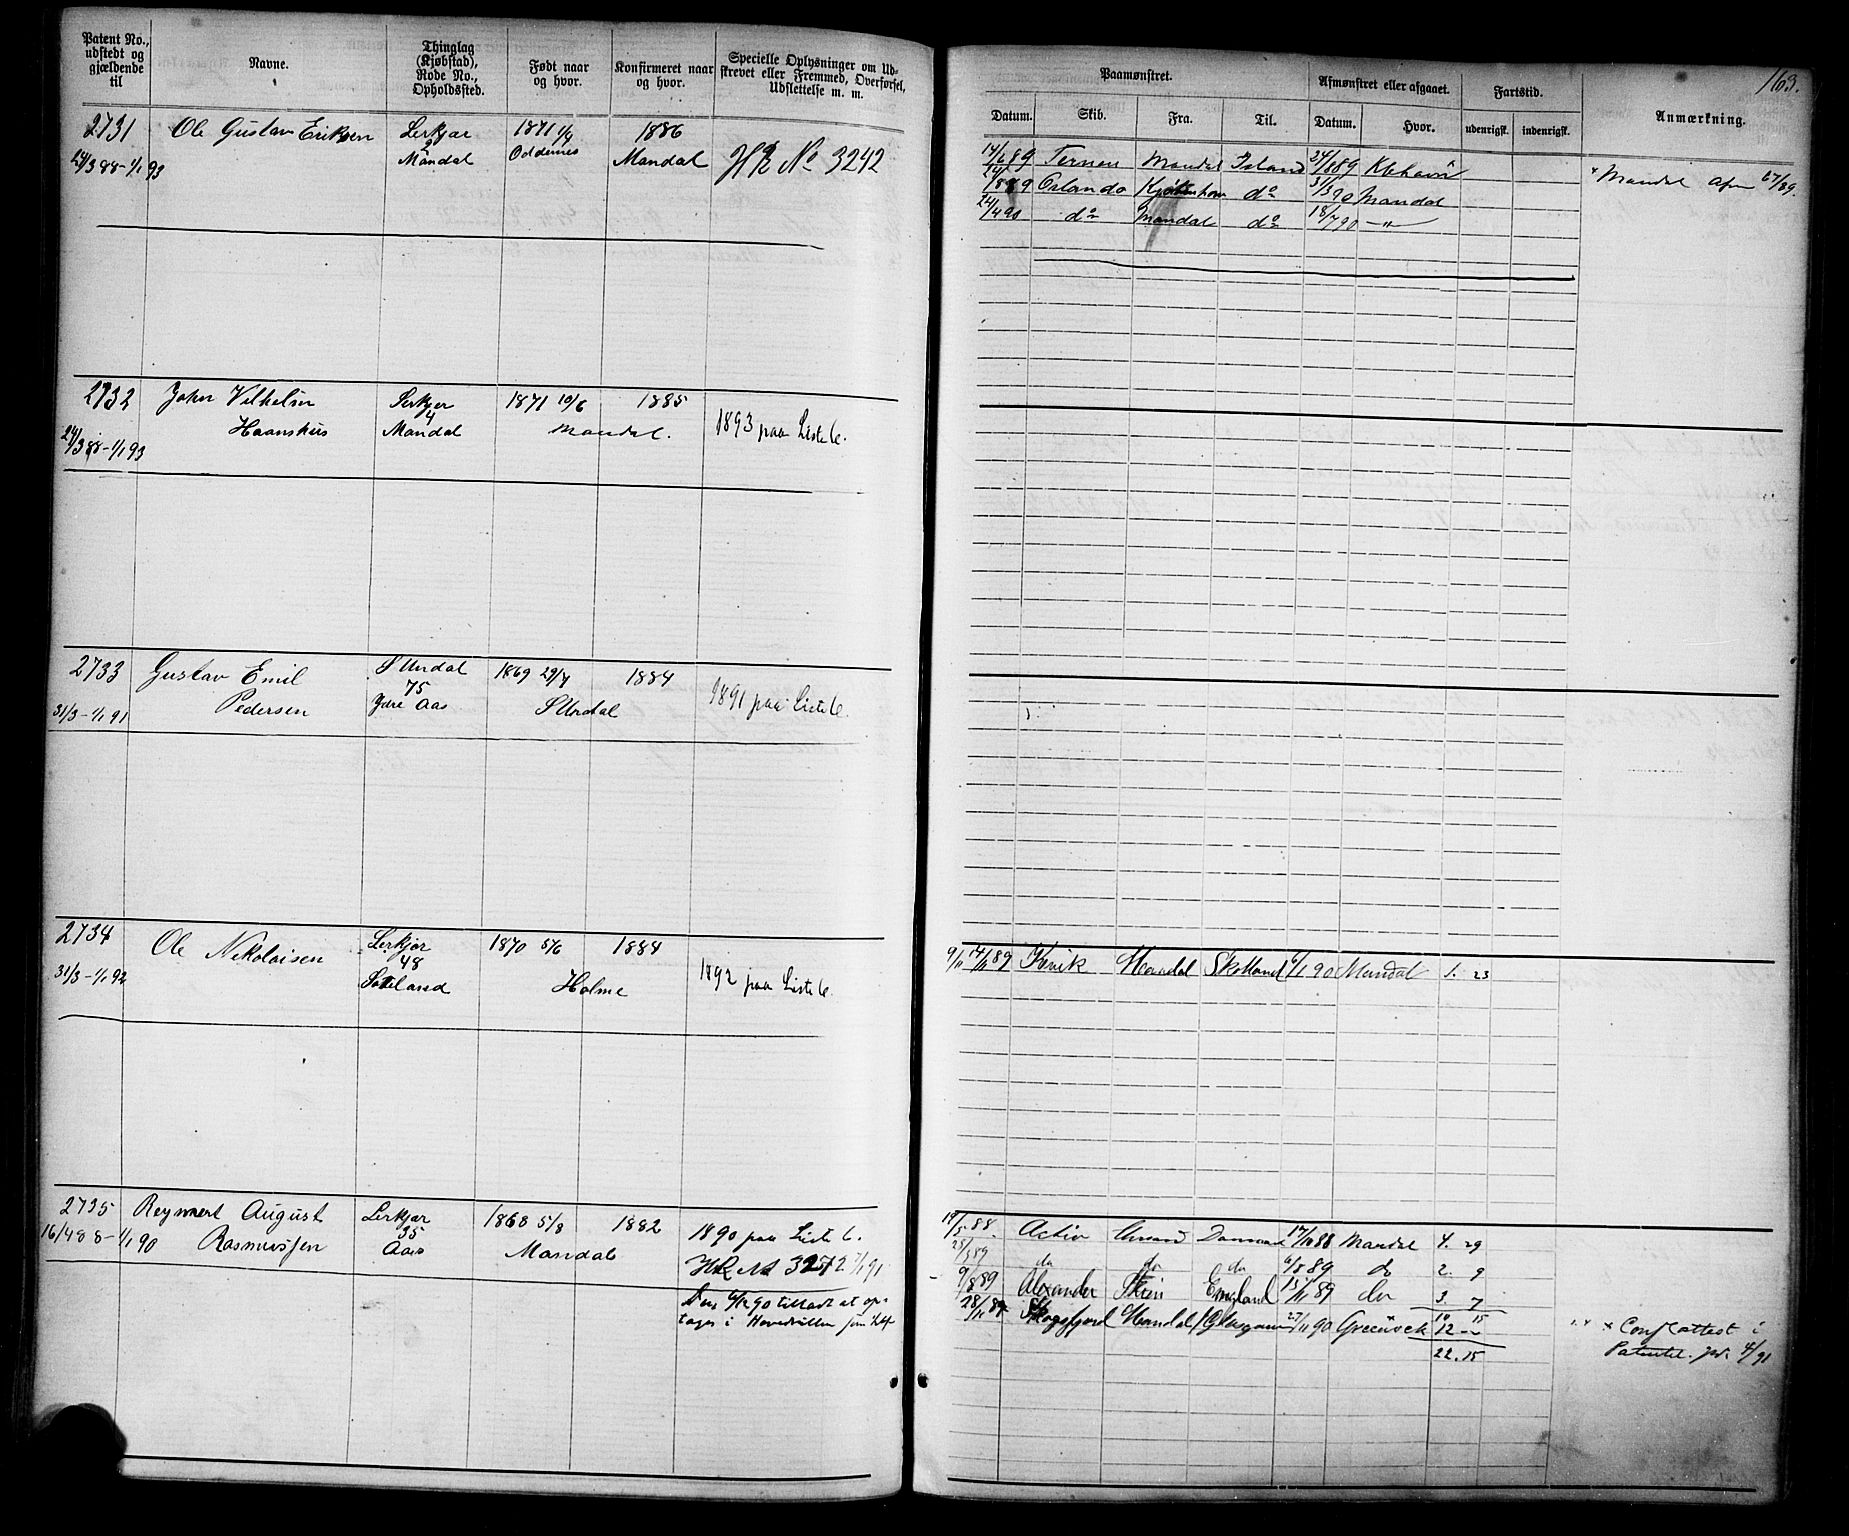 Patent No., udstedt og gjældende til
Navne.
Thinglag (Kjøbstad), Rode No., Opholdssted.
Født naar og hvor.
Konfirmeret naar og hvor.
Specielle Oplysninger om Udskrevet eller Fremmed, Overførsel, Udslettelse m. m.
Paamønstret.
Afmønstret eller afgaaet.
Fartstid.
Anmærkning.
163.
Datum.
Skib.
Fra.
Til.
Datum.
Hvor.
udenrigsk.
indenrigsk.
2731 Ole Gustav Eriksen Lerkjær 1871 1886
24/3 88-1/1 93 2 Mandal Oddernes Mandal HR No 3242
Ternen Mandal Island 24/8 89 Kbhavn
Orlando Kjøbenhavn do 31/3 90 Mandal
24/4 90 do Mandal do 18/7 90 -"-
Mandal
2732 John Vilhelm Lerkjer 1871 10/6 1885
24/3 88-1/1 93 Haanshus 4 Mandal Mandal. 1893 paa Liste 6.
2733 Gustav Emil S Undal 1869 29/7 1884
31/3-1/1 91 Pedersen 75 Ydre Aas S Undal 1891 paa Liste 6.
2734 Ole Nikolaisen Lerkjær 1870 5/6 1884
31/3-1/1 92 48 Holme 1892 paa Liste 6.
9/11 14/11 89 Kvik Mandal Skotland 6/1 90 Mandal 1. 23
2735 Reymert August Lerkjær 1868 5/8 1882 1890 paa Liste 6.
16/4 88-1/1 90 Rasmussen 35 Aas Mandal HR No
Den 6/12 90 tilladt at op-
tages i Hovedrullen
19/5 88. Activ Danmark 17/10 88 Mandal 4. 29
da do da 6/8 89 do 2. 9
9/8 89 Alexander Skien England 15/11 89 do 3. 7
28/11 89 Skogsfjord Mandal Glasgow 27/11 90 Greenock 10 15
12 -
22. 15
x Conf attest i
Patentet. 4/91